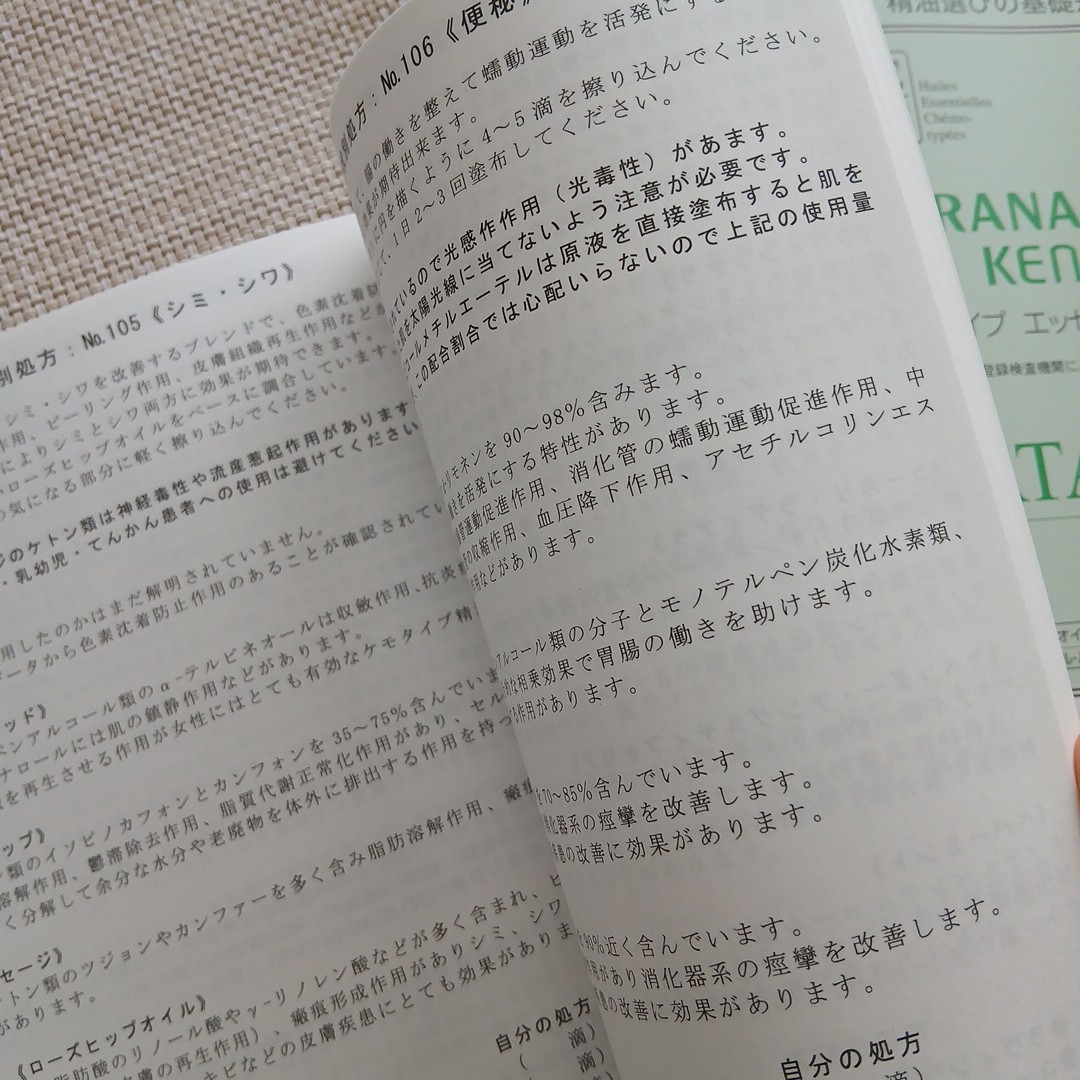 処方：No.105《シミ・シワ》
シミ・シワを改善するブレンドで、色素沈着防
作用、ピーリング作用、皮膚組織再生作用などが
によりシミとシワ両方に効果が期待できます。
ローズヒップオイルをベースに調合しています。
の気になる部分に軽く擦り込んでください。
ジのケトン類は神経毒性や流産惹起作用があります
・乳幼児・てんかん患者への使用は避けてください
用したのかはまだ解明されていません。
データから色素沈着防止作用のあることが確認されてい
ッド》
ペンアルコール類のα-テルピネオールは収斂作用、抗炎
ナロールには肌の鎮静作用などがあります。
を再生させる作用が女性にはとても有効なケモタイプ精
ップ》
類のイソピノカフォンとカンフォンを 35～75%含んでいま
溶解作用、鬱滞除去作用、脂質代謝正常化作用があり、セル
く分解して余分な水分や老廃物を体外に排出する作用を持つ
セージ》
トン類のツジョンやカンファーを多く含み脂肪溶解作用、瘢
があります。
《ローズヒップオイル》
脂肪酸のリノール酸やγ-リノレン酸などが多く含まれ、ヒ
皮膚の再生作用）、瘢痕形成作用がありシミ、シワ
キビなどの皮膚疾患にとても効果がありま
自分の処方
( 滴)
( 滴)
処方：No.106《便秘》
腸の働きを整えて蠕動運動を活発にする
果が期待出来ます。
に円を描くように 4～5 滴を擦り込んでください。
て、1日2～3回塗布してください。
れているので光感作作用（光毒性）があます。
肌を太陽光線に当てないよう注意が必要です。
ールメチルエーテルは原液を直接塗布すると肌を
この配合割合では心配いらないので上記の使用量
リモネンを 90～98%含みます。
きを活発にする特性があります。
運動促進作用、消化管の蠕動運動促進作用、中
の収縮作用、血圧降下作用、アセチルコリンエス
などがあります。
アルコール類の分子とモノテルペン炭化水素類、
的な相乗効果で胃腸の働きを助けます。
る作用があります。
を70～85%含んでいます。
消化器系の痙攣を改善します。
患の改善に効果があります。
90%近く含んでいます。
用があり消化器系の痙攣を改善します。
患の改善に効果があります。
自分の処方
滴)
精油選びの基礎
Huiles
Essentielles
Chémo-
typées
RANA
KEN
イプ エッセ
登録検査機関に
TA